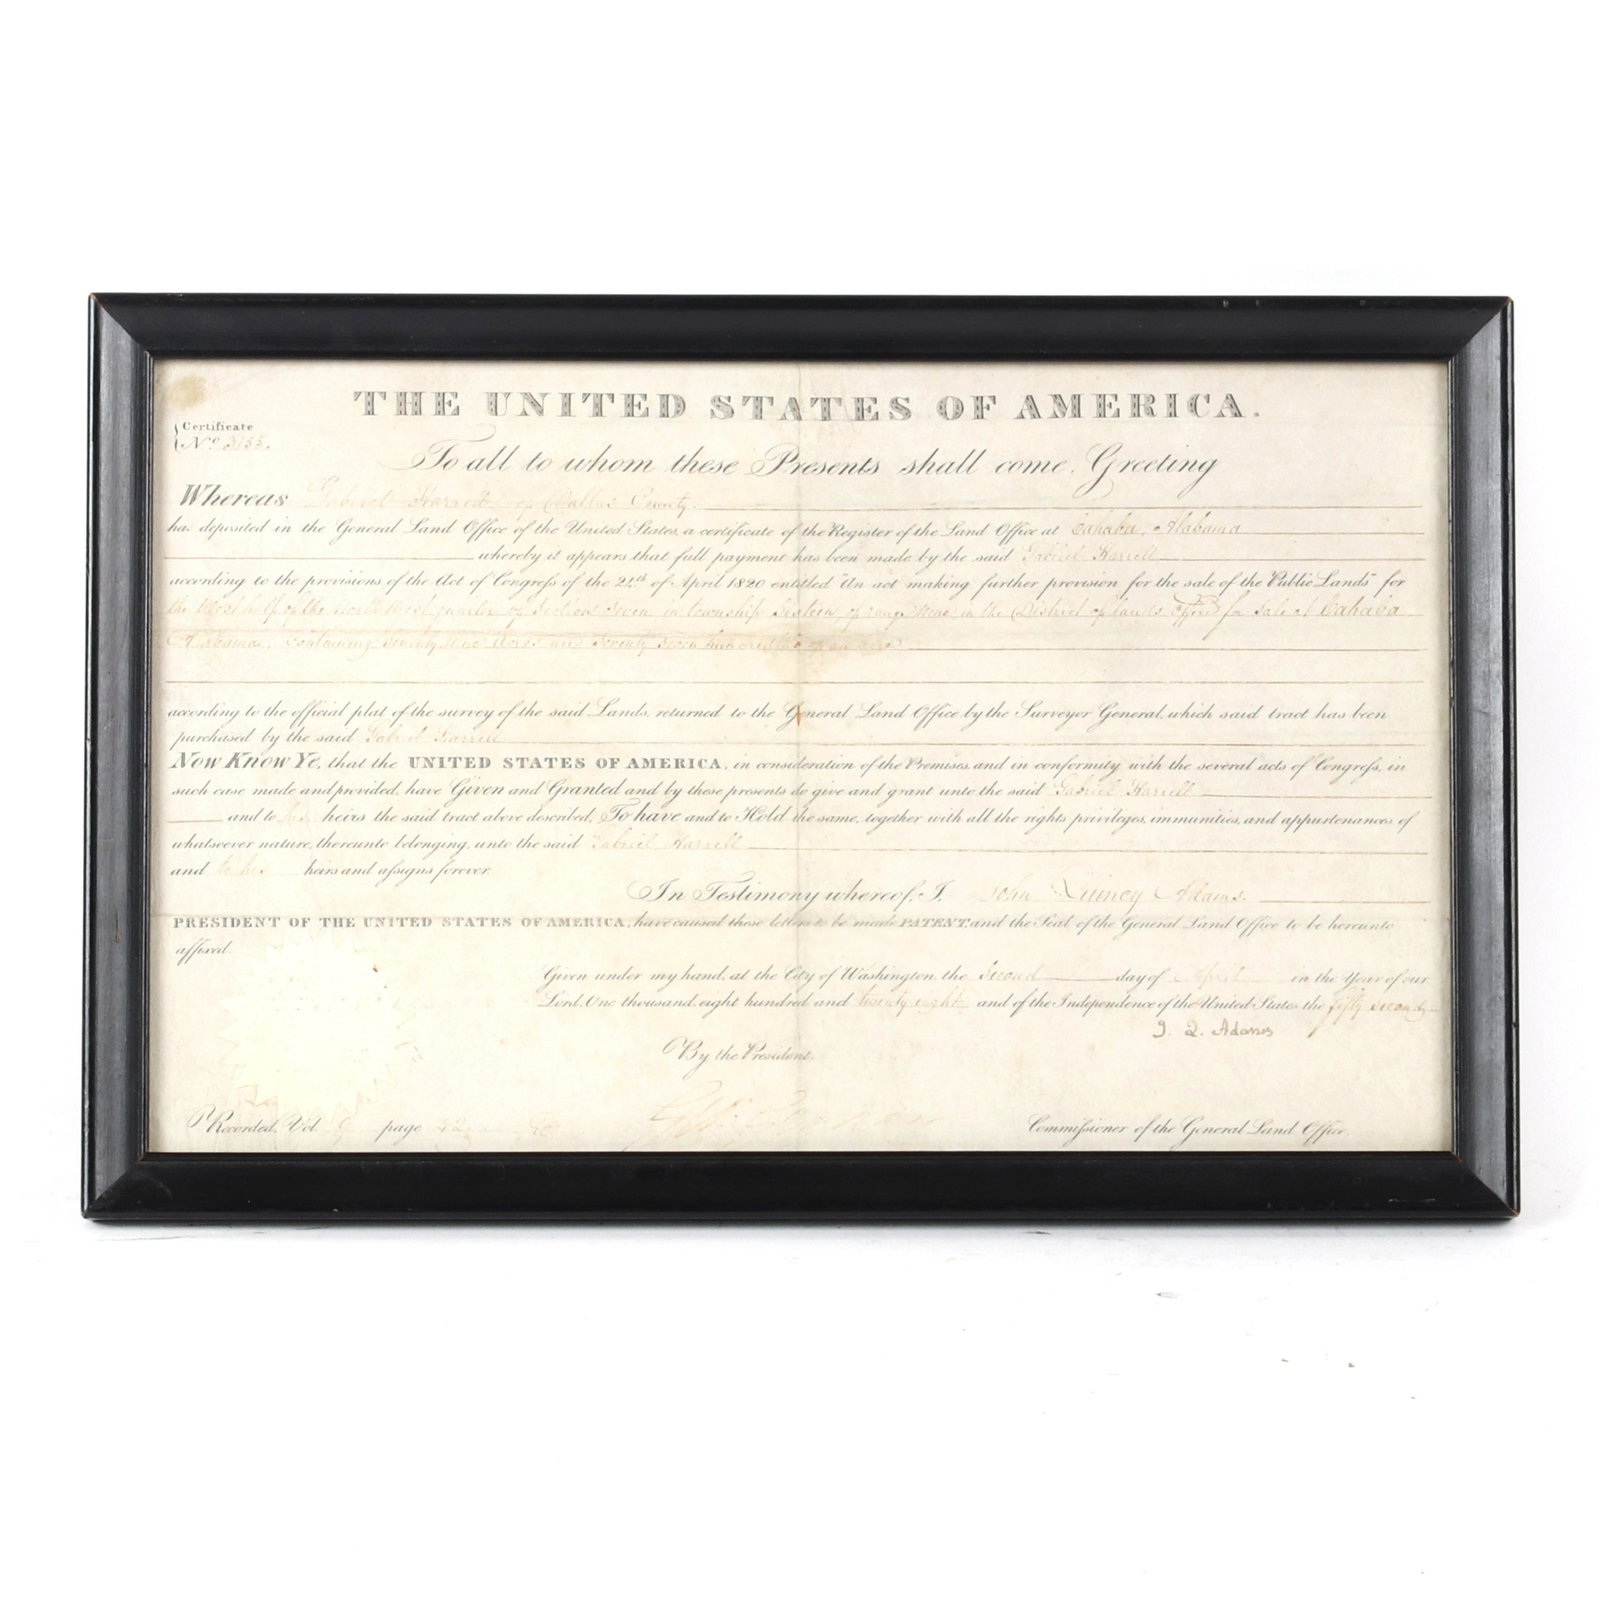 THE UNITED STATES OF AMERICA.
Certificate
No. 3155.
To all to whom these Presents shall come, Greeting
Whereas Gabriel Harrell of Dallas County
has deposited in the General Land Office of the United States, a certificate of the Register of the Land Office at Cahaba, Alabama
whereby it appears that full payment has been made by the said Gabriel Harrell
according to the provisions of the Act of Congress of the 24th of April 1820 entitled "An act making further provision for the sale of the Public Lands" for
the West half of the North West quarter of Section Seven in township Sixteen, of range Nine, in the District of lands offered for Sale at Cahaba
Alabama, Containing Seventy Nine Acres and Seventy Seven hundredths of an acre
according to the official plat of the survey of the said Lands, returned to the General Land Office by the Surveyor General, which said tract has been
purchased by the said Gabriel Harrell
Now Know Ye, that the UNITED STATES OF AMERICA, in consideration of the Premises, and in conformity with the several acts of Congress, in
such case made and provided, have Given and Granted and by these presents do give and grant unto the said Gabriel Harrell
and to his heirs the said tract above described; To have and to Hold the same, together with all the rights privileges, immunities, and appurtenances of
whatsoever nature, thereunto belonging, unto the said Gabriel Harrell
and to his heirs and assigns forever
In Testimony whereof, I, John Quincy Adams.
PRESIDENT OF THE UNITED STATES OF AMERICA, have caused these letters to be made PATENT, and the Seal of the General Land Office to be hereunto
affixed.
Given under my hand, at the City of Washington the Second day of April in the Year of our
Lord, One thousand, eight hundred and twenty eight and of the Independence of the United States the fifty second
J. Q. Adams
By the President,
Recorded, Vol 9 page
Commissioner of the General Land Office.